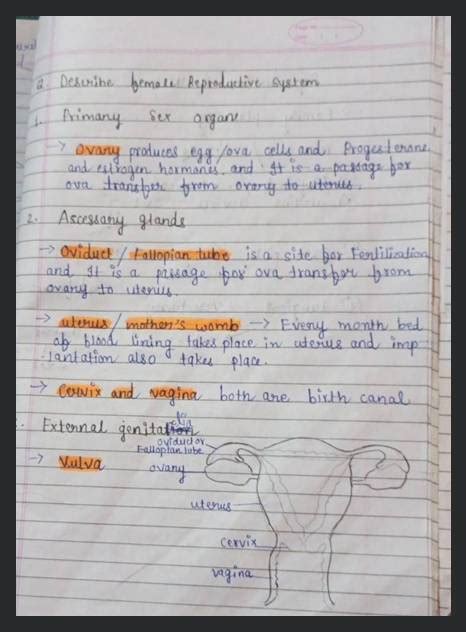 Q. Describe female Reproductive System
1. Primary Sex organs
→ Ovary produces egg/ova cells and Progesterone
and estrogen hormones. and It is a passage for
ova transfer from ovary to uterus.
2. Ascessary glands
→ Oviduct / Fallopian tube is a site for Fertilization
and It is a passage for ova transfer from
ovary to uterus.
→ uterus / mother's womb → Every month bed
of blood lining takes place in uterus and imp
-lantation also takes place.
→ Cervix and vagina both are birth canal
External genitalia
→ Vulva
oviduct or
Fallopian tube
ovary
uterus
cervix
vagina